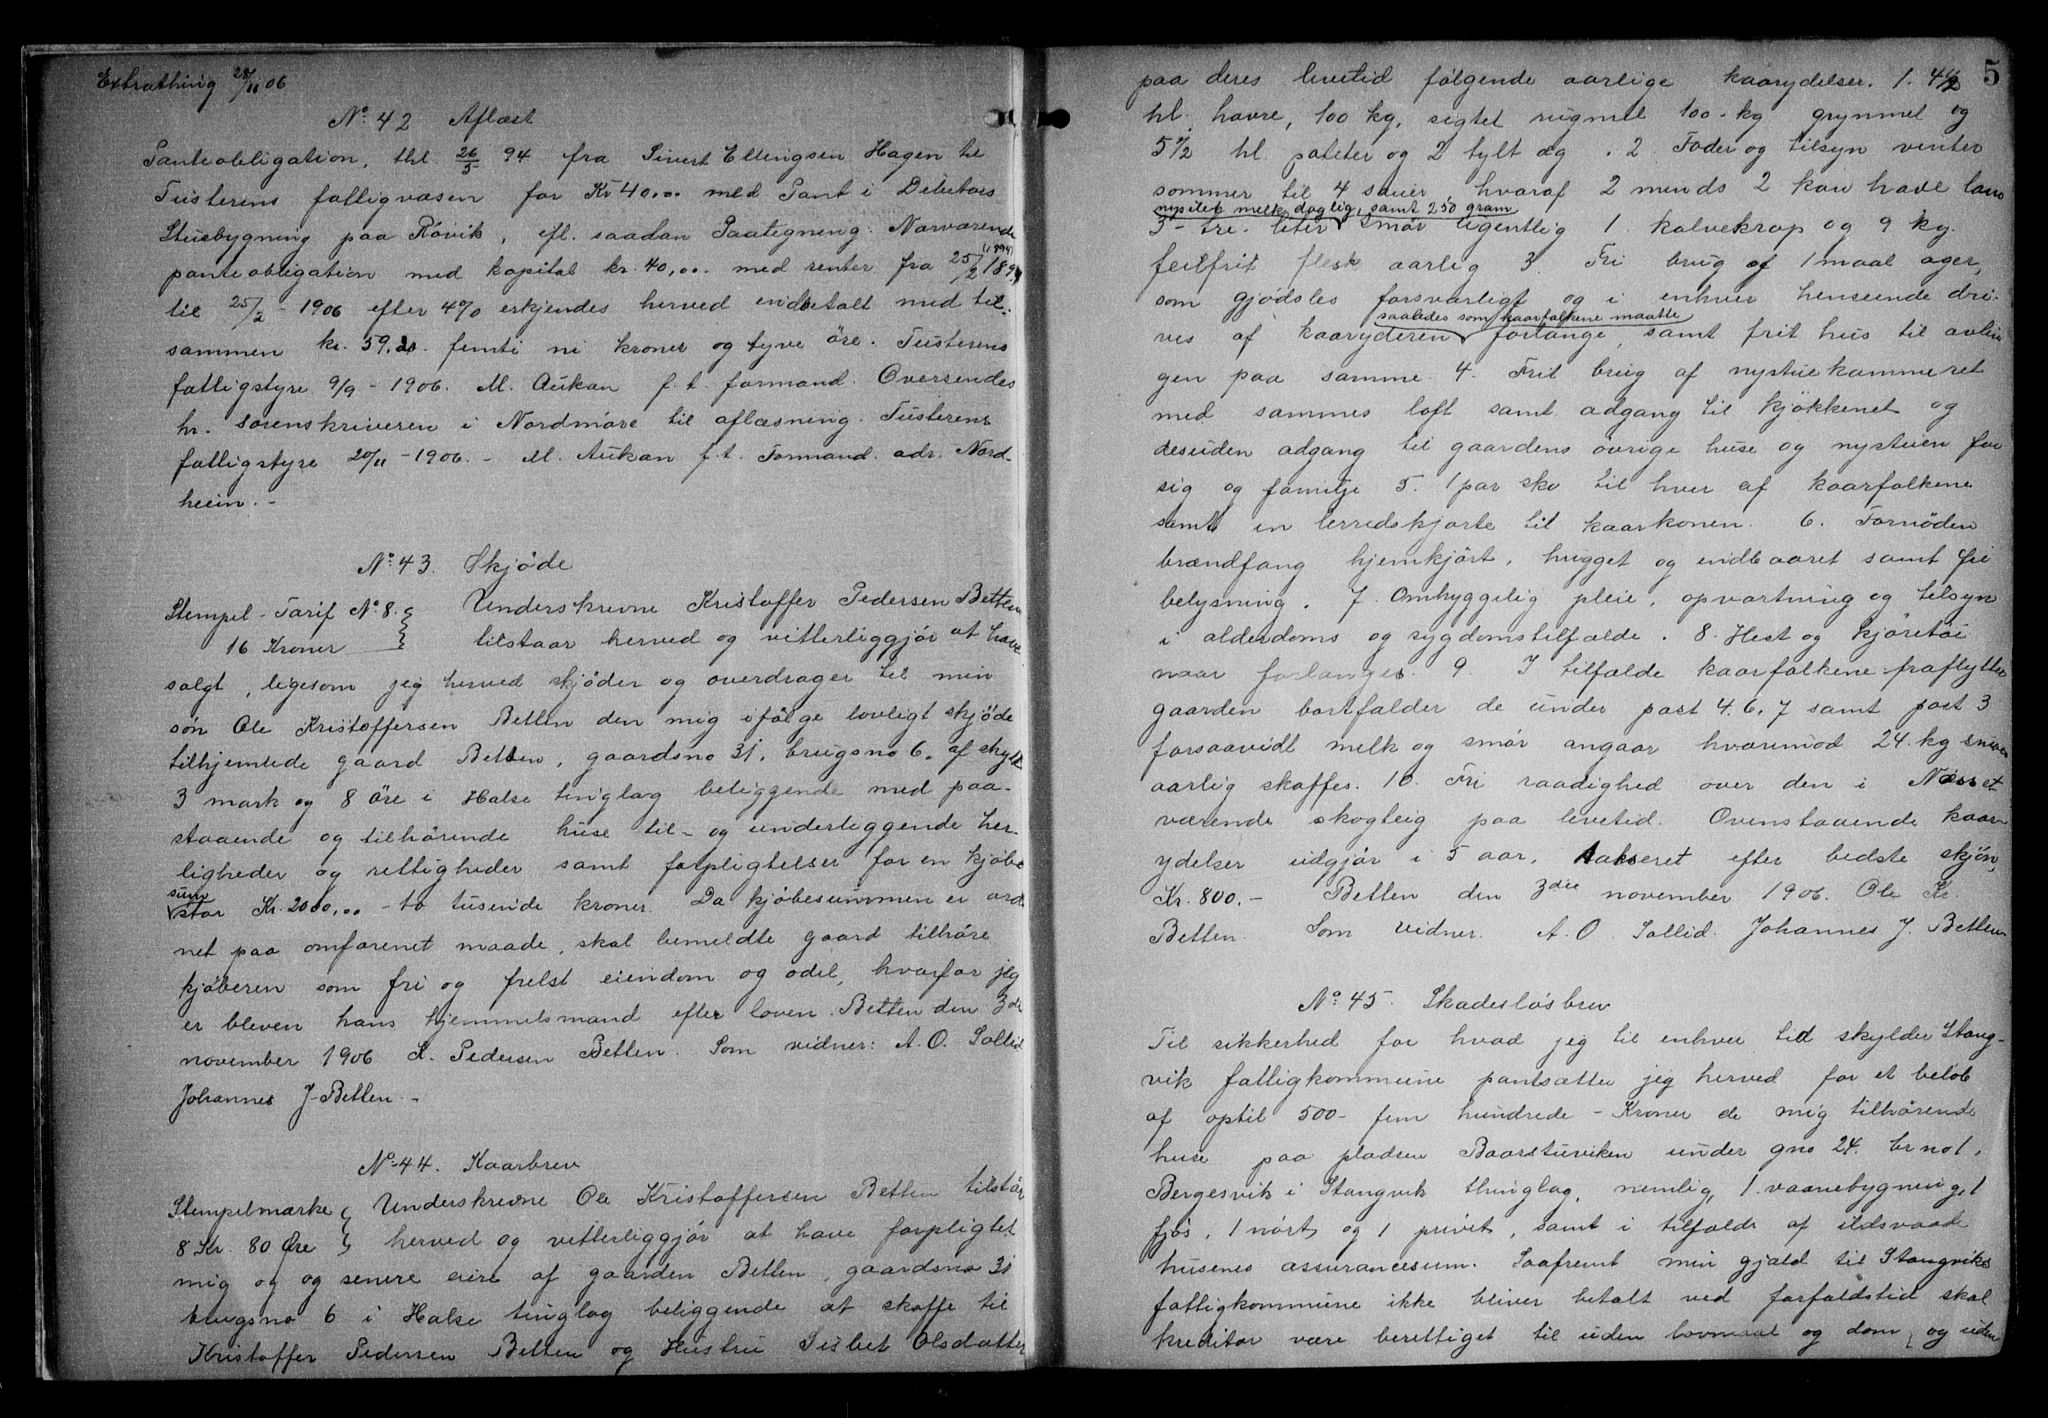 Extrathing 28/11 06
No. 42 Aflæst
Panteobligation, thl. 26/5 94 fra Sivert Ellingsen Hagen til
Tusterens fattigvæsen for Kr 40,00 med Pant i Debitors
Stuebygning paa Røvik, efl. saadan Paategning: Nærværende
panteobligation med kapital kr. 40,00 med renter fra 25/2 1894 (1894)
til 25/2 - 1906 efter 4% erkjendes herved indbetalt med til-
sammen kr. 59,20 femti ni kroner og tyve øre. Tusterens
fattigstyre 9/9 - 1906. M. Aukan f. t. formand. Oversendes
hr. sorenskriveren i Nordmøre til aflæsning. Tusterens
fattigstyre 20/11 - 1906. - M. Aukan f. t. Formand. adr. Nord-
heim. -
No. 43. Skjøde
Stempel-Tarif No. 8. Underskrevne Kristoffer Pedersen Betten
16 Kroner tilstaar herved og vitterliggjør at have
solgt, ligesom jeg herved skjøder og overdrager til min
søn Ole Kristoffersen Betten den mig ifølge lovligt skjøde
tilhjemlede gaard Betten, gaardsno 31, brugsno 6. af skyld
3 mark og 8 øre i Halse tinglag beliggende med paa-
staaende og tilhørende huse til- og underliggende her-
ligheder og rettigheder samt forpligtelser for en kjøbe
sum
stor Kr. 2000,00 - to tusende kroner. Da kjøbesummen er ord
net paa omforenet maade, skal bemeldte gaard tilhøre
kjøberen som fri og frelst eiendom og odel, hvorfor jeg
er bleven hans hjemmelsmand efter loven. Betten den 3die
november 1906 K. Pedersen Betten. Som vidner: A. O. Sollid
Johannes J. Betten. -
No. 44. Kaarbrev
Stempelmærke Underskrevne Ole Kristoffersen Betten tilstår
8 Kr. 80 Øre herved og vitterliggjør at have forpligtet
mig og og senere eiere af gaarden Betten, gaardsno 31
brugsno 6 i Halse tinglag beliggende at skaffe til
Kristoffer Pedersen Betten og Hustru Sisbet Olsdatter
5
paa deres levetid følgende aarlige kaarydelser. 1. 4 1/2
hl. havre, 100 kg. sigtet rugmel 100 kg grynmel og
5 1/2 hl. poteter og 2 tylt æg. 2. Foder og tilsyn vinter
sommer til 4 sauer hvoraf 2 mends 2 kan have lam
nysilet melk daglig, samt 250 gram
3 - tre - liter smør ugentlig 1 kalvekrop og 9 kg.
feilfrit flesk aarlig 3. Fri brug af 1 maal ager,
som gjødsles forsvarligt og i enhver henseende dri-
saaledes som kaarfolkene maatte
ves af kaaryderen forlange, samt frit hus til avlin
gen paa samme. 4. Frit brug af nystuekammeret
med sammes loft samt adgang til kjøkkenet og
desuden adgang til gaardens øvrige huse og nystuen for
sig og familje 5. 1 par sko til hver af kaarfolkene
samt en lerredskjorte til kaarkonen. 6. Fornøden
brændfang hjemkjørt, hugget og indbaaret samt fri
belysning. 7. Omhyggelig pleie, opvartning og tilsyn
i alderdoms og sygdomstilfælde. 8. Hest og kjøretøi
naar forlanges. 9. I tilfælde kaarfolkene fraflytter
gaarden bortfalder de under post 4. 6. 7 samt post 3
forsaavidt melk og smør angaar hvorimod 24 kg smør
aarlig skaffes. 10. Fri raadighed over den i Næsset
værende skogteig paa levetid. Ovenstaaende kaar-
ydelser udgjør i 5 aar, takseret efter bedste skjøn,
Kr. 800. - Betten den 3die november 1906. Ole Kr.
Betten. Som vidner. A. O. Sollid. Johannes J. Betten
No. 45. Skadesløsbrev
Til sikkerhed for hvad jeg til enhver tid skylder Stang-
vik fattigkommune pantsætter jeg herved for et beløb
af optil 500 - fem hundrede - Kroner de mig tilhørende
huse paa pladsen Baarstuviken under gno 24. br no 1,
Bergesvik i Stangvik thinglag, nemlig, 1 vaanebygning, 1
fjøs, 1 nøst og 1 privet, samt i tilfælde af ildsvaade
husenes assurancesum. Saafremt min gjæld til Stangviks
fattigkommune ikke bliver betalt ved forfaldstid skal
kreditor være berettiget til uden lovmaal og dom, og uden